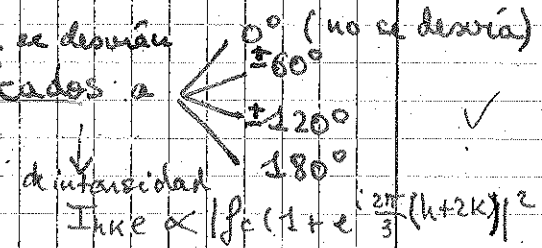 se desvían
0° (no se desvía)
±60°
cados a
±120°
180°
de intensidad
I_hkl ∝ |f_c(1+e^{i 2π/3 (h+2k)})|²